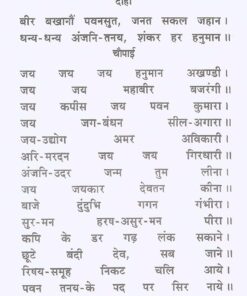 दोहा
बीर बखानौं पवनसुत, जनत सकल जहान।
धन्य-धन्य अंजनि-तनय, शंकर हर हनुमान॥
चौपाई
जय जय जय हनुमान अखण्डी।
जय जय महाबीर बजरंगी॥
जय कपीस जय पवन कुमारा।
जय जग-बंधन सील-अगारा॥
जय-उद्योग अमर अविकारी।
अरि-मरदन जय जय गिरधारी॥
अंजनि-उदर जन्म तुम लीना।
जय जयकार देवतन कीना॥
बाजे दुंदुभि गगन गंभीरा।
सुर-मन हरष-असुर-मन पीरा॥
कपि के डर गढ़ लंक सकाने।
छूटे बंदी देव, सब जाने॥
रिषय-समूह निकट चलि आये।
पवन तनय-के पद पर सिर नाये॥